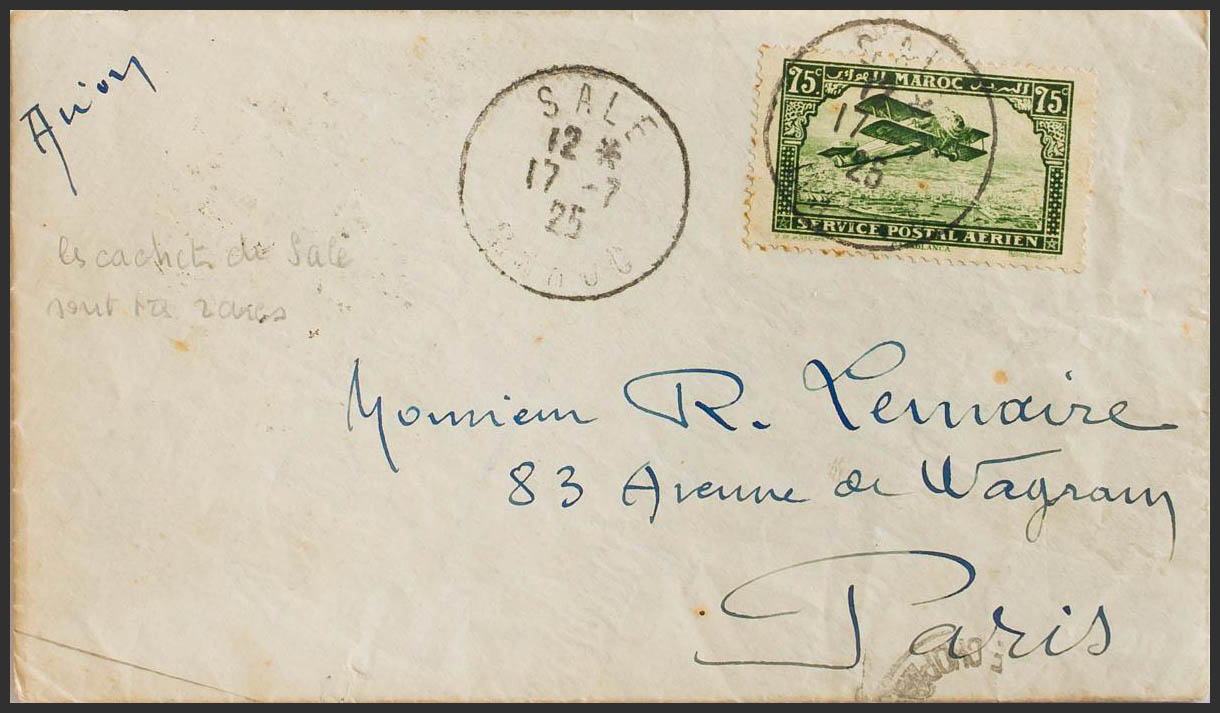 Avion
SALE
12 *
17 -7
25
MAROC
75c MAROC البريد الجوي 75c
SERVICE POSTAL AERIEN
CASABLANCA
17
25
les cachets de Salé
sont très rares
Monsieur R. Lemaire
83 Avenue de Wagram
Paris